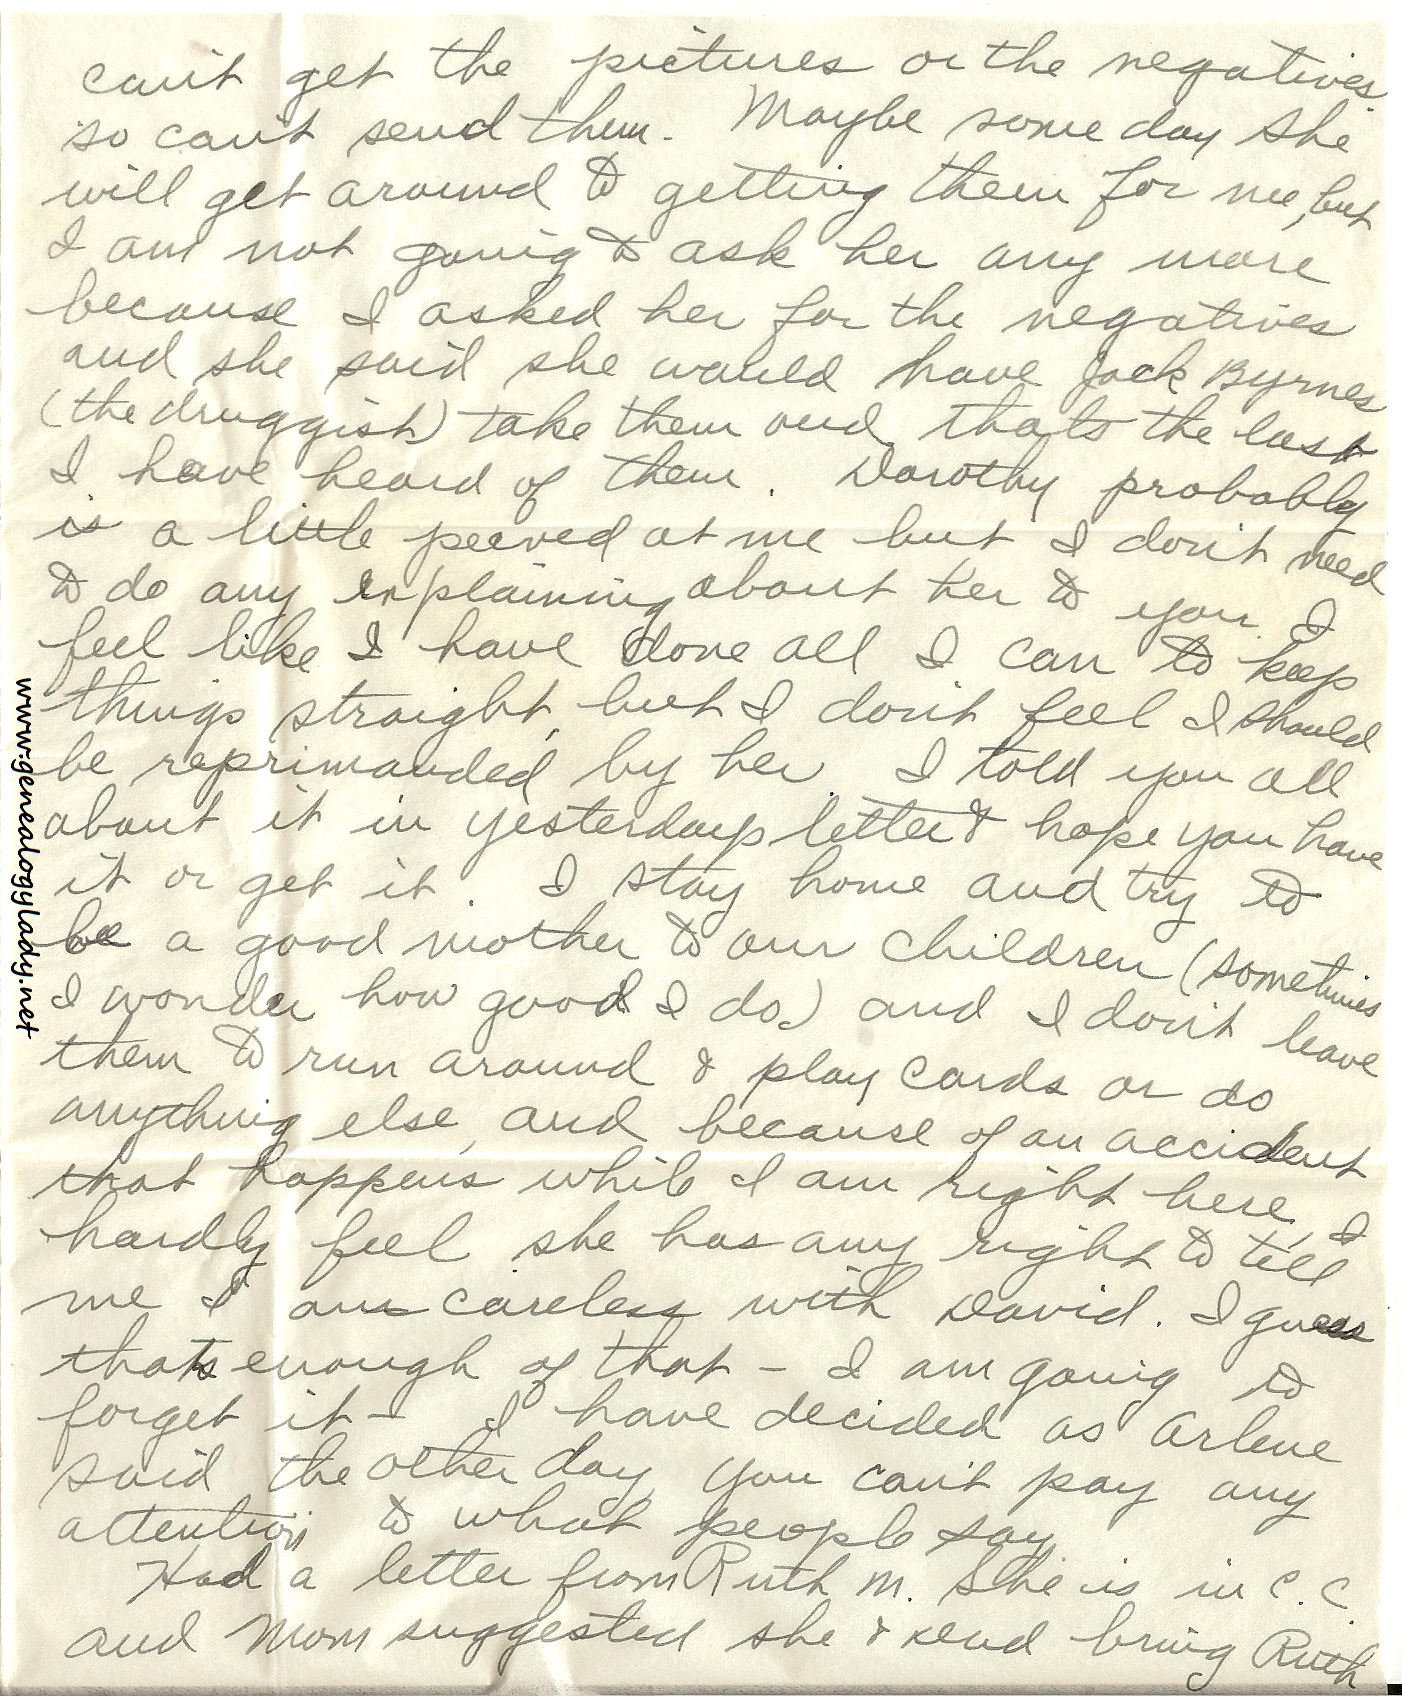 can't get the pictures or the negatives
so can't send them. Maybe some day she
will get around to getting them for me, but
I am not going to ask her any more
because I asked her for the negatives
and she said she would have Jack Byrnes
(the druggist) take them and that's the last
I have heard of them. Dorothy probably
is a little peeved at me but I don't need
to do any explaining about her to you. I
feel like I have done all I can to keep
things straight, but I don't feel I should
be reprimanded by her. I told you all
about it in yesterdays letter & hope you have
it or get it. I stay home and try to
be a good mother to our children (sometimes
I wonder how good I do.) and I don't leave
them to run around & play cards or do
anything else, and because of an accident
that happens while I am right here, I
hardly feel she has any right to tell
me I am careless with David. I guess
thats enough of that - I am going to
forget it - I have decided as Arlene
said the other day, you can't pay any
attention to what people say.
Had a letter from Ruth M. She is in C. C.
and Mom suggested she & bring Ruth
www.genealogylady.net